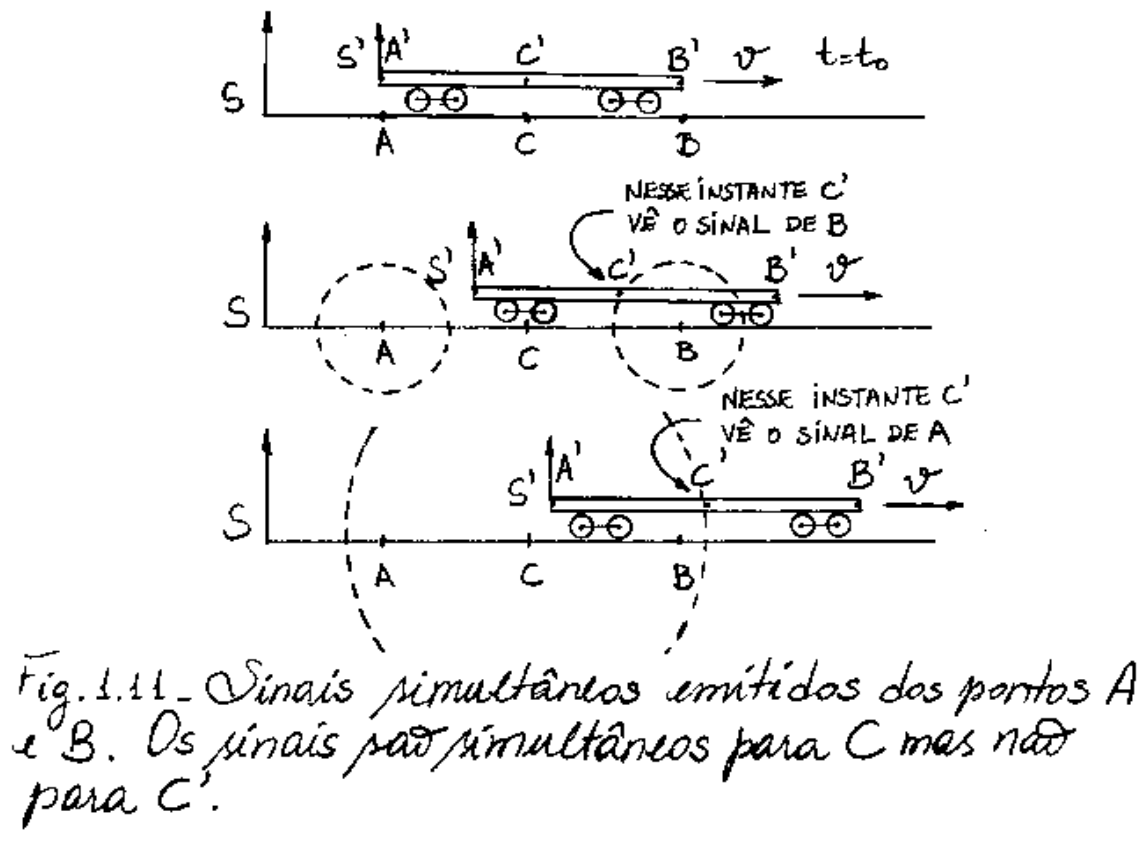 S' A' C' B' v t=t₀
S
A C B
NESSE INSTANTE C'
VÊ O SINAL DE B
S' A' C' B' v
S
A C B
NESSE INSTANTE C'
VÊ O SINAL DE A
S' A' C' B' v
S
A C B
Fig. 1.11 - Sinais simultâneos emitidos dos pontos A
e B. Os sinais são simultâneos para C mas não
para C'.